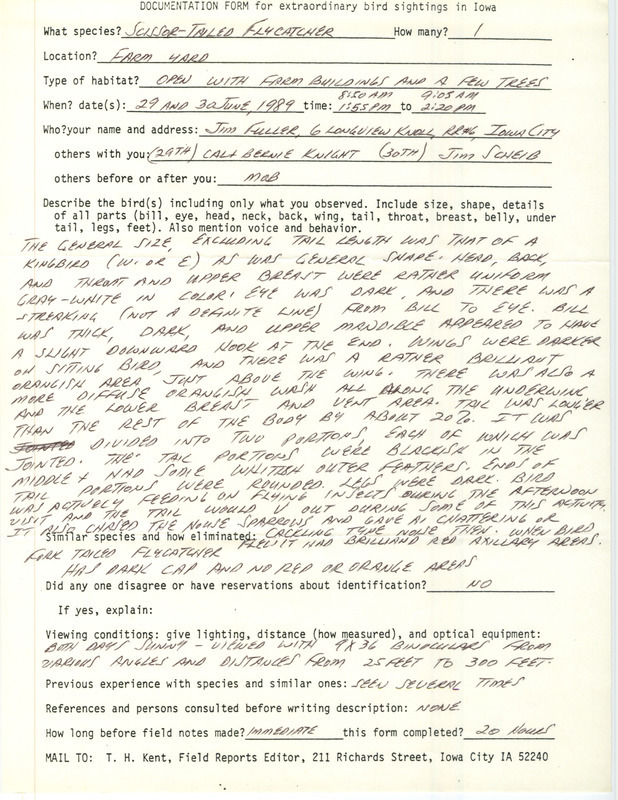 DOCUMENTATION FORM for extraordinary bird sightings in Iowa
What species? SCISSOR-TAILED FLYCATCHER How many? 1
Location? FARM YARD
Type of habitat? OPEN WITH FARM BUILDINGS AND A FEW TREES
8:50 AM 9:05 AM
When? date(s): 29 AND 30 JUNE, 1989 time: 1:55 PM to 2:20 PM
Who? your name and address: JIM FULLER, 6 LONGVIEW KNOLL, RR#6, IOWA CITY
others with you: (29TH) CAL + BERNIE KNIGHT (30TH) JIM SCHEIB
others before or after you: MOB
Describe the bird(s) including only what you observed. Include size, shape, details
of all parts (bill, eye, head, neck, back, wing, tail, throat, breast, belly, under
tail, legs, feet). Also mention voice and behavior.
THE GENERAL SIZE, EXCLUDING TAIL LENGTH WAS THAT OF A
KINGBIRD (W. OR E) AS WAS GENERAL SHAPE. HEAD, BACK,
AND THROAT AND UPPER BREAST WERE RATHER UNIFORM
GRAY-WHITE IN COLOR. EYE WAS DARK, AND THERE WAS A
STREAKING (NOT A DEFINITE LINE) FROM BILL TO EYE. BILL
WAS THICK, DARK, AND UPPER MANDIBLE APPEARED TO HAVE
A SLIGHT DOWNWARD HOOK AT THE END. WINGS WERE DARKER
ON SITTING BIRD, AND THERE WAS A RATHER BRILLIANT
ORANGISH AREA JUST ABOVE THE WING. THERE WAS ALSO A
MORE DIFFUSE ORANGISH WASH ALL ALONG THE UNDERWING
AND THE LOWER BREAST AND VENT AREA. TAIL WAS LONGER
THAN THE REST OF THE BODY BY ABOUT 20%. IT WAS
JOINTED DIVIDED INTO TWO PORTIONS, EACH OF WHICH WAS
JOINTED. THE TAIL PORTIONS WERE BLACKISH IN THE
MIDDLE + HAD SOME WHITISH OUTER FEATHERS. ENDS OF
TAIL PORTIONS WERE ROUNDED. LEGS WERE DARK. BIRD
WAS ACTIVELY FEEDING ON FLYING INSECTS DURING THE AFTERNOON
VISIT AND THE TAIL WOULD V OUT DURING SOME OF THIS ACTIVITY.
IT ALSO CHASED THE HOUSE SPARROWS AND GAVE A CHATTERING OR
Similar species and how eliminated: CACKLING TYPE NOISE THEN. WHEN BIRD
FORK TAILED FLYCATCHER FLEW IT HAD BRILLIAND RED AXILLARY AREAS.
HAS DARK CAP AND NO RED OR ORANGE AREAS
Did any one disagree or have reservations about identification? NO
If yes, explain:
Viewing conditions: give lighting, distance (how measured), and optical equipment:
BOTH DAYS SUNNY - VIEWED WITH 9X36 BINOCULARS FROM
VARIOUS ANGLES AND DISTANCES FROM 25 FEET TO 300 FEET.
Previous experience with species and similar ones: SEEN SEVERAL TIMES
References and persons consulted before writing description: NONE
How long before field notes made? IMMEDIATE this form completed? 20 HOURS
MAIL TO: T. H. Kent, Field Reports Editor, 211 Richards Street, Iowa City IA 52240